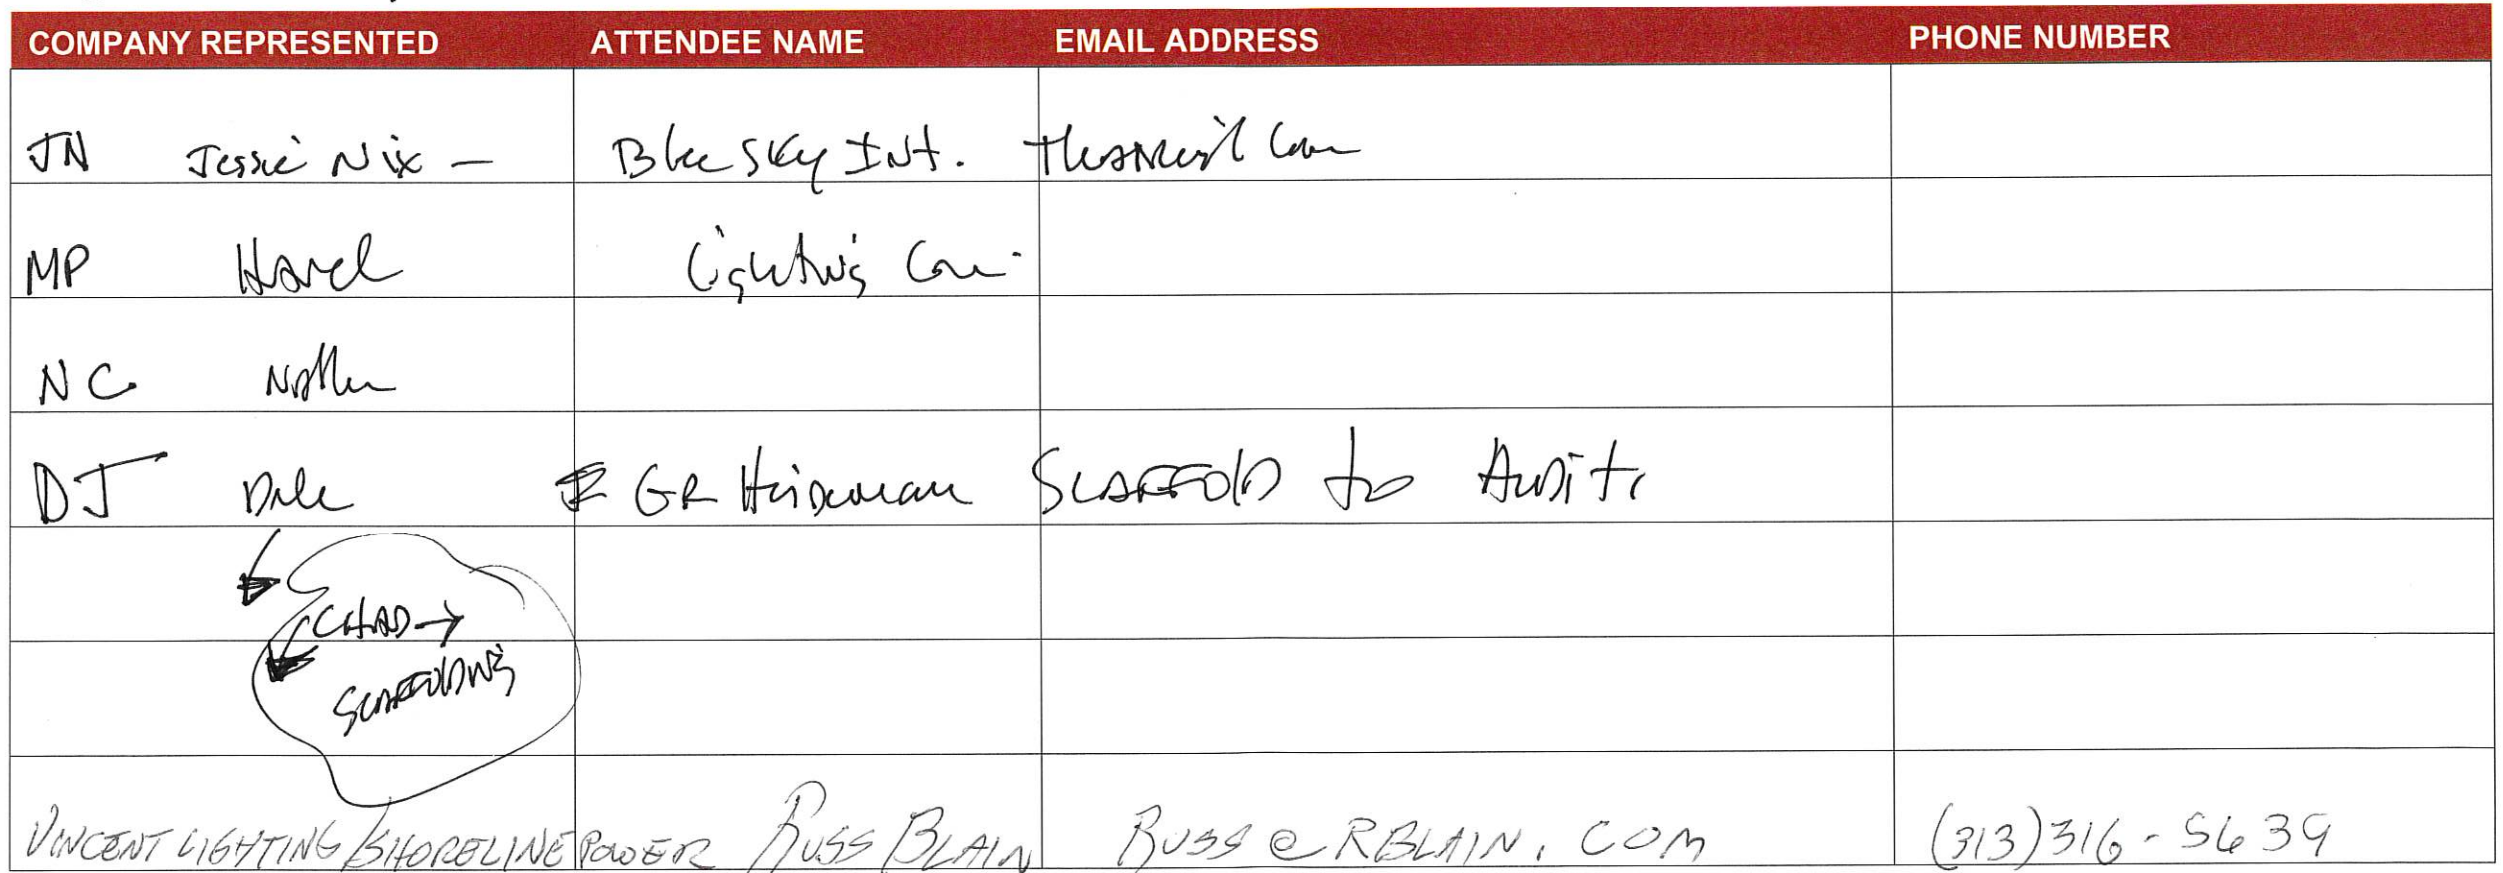 COMPANY REPRESENTED ATTENDEE NAME EMAIL ADDRESS PHONE NUMBER
JN Jessie Nix — Blue Sky Int.
MP Lighting
NC
DJ Dale GR SCAFFOLD to Audit.
CHAD →
SCAFFOLDING
VINCENT LIGHTING/SHORELINE POWER RUSS BLAIN RUSS@RBLAIN.COM (313)316-5639